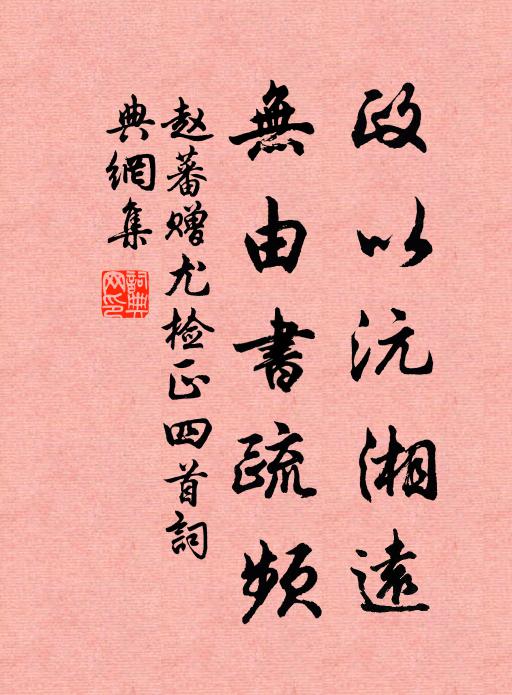 政以沅湘遠
無由書疏頻
赵蕃赠尤检正四首詞
典網集
詞典網印